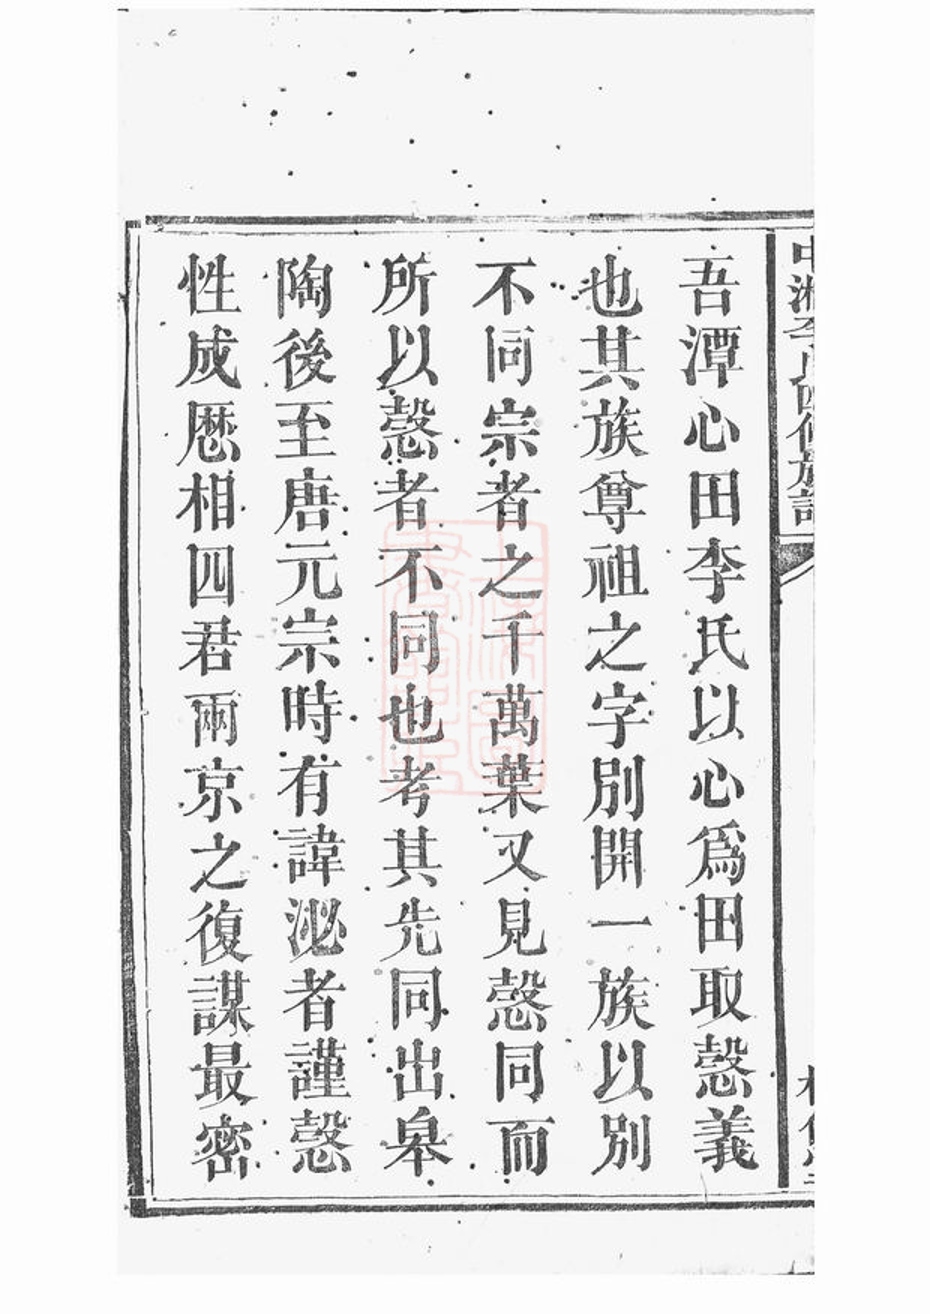 吾潭心田李氏以心為田取愨義
也其族尊祖之字別開一族以別
不同宗者之千萬葉又見愨同而
所以愨者不同也考其先同出皋
陶後至唐元宗時有諱泌者謹愨
性成厯相四君兩京之復謀最密